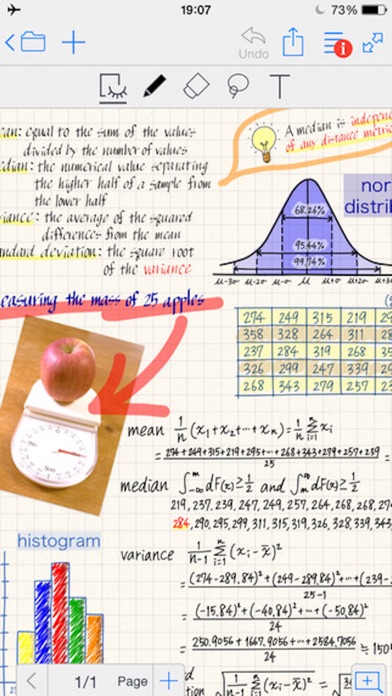 19:07
73%
Undo
T
ean: equal to the sum of the values
divided by the number of values
edian: the numerical value separating
the higher half of a sample from
the lower half
riance: the average of the squared
differences from the mean
andard deviation: the square root
of the variance
easuring the mass of 25 apples
A median is indepen
of any distance metri
nor
distrib
68.26%
95.44%
99.74%
μ-3σ μ-2σ μ-σ μ μ+σ μ+2σ μ+3σ
274 249 315 219 29
358 328 264 311 28
237 284 319 268 35
326 299 247 339 29
268 343 279 257 23
mean 1/n (x₁+x₂+⋯+xₙ)=1/n Σ xᵢ
= 274+249+315+219+295+⋯+268+343+279+257+239 / 25 =
median ∫ dF(x)≥1/2 and ∫ dF(x)≥1/2
219,237,239,247,249,257,264,268,268,274
284,290,295,299,311,315,319,326,328,339,343
histogram
variance 1/n-1 Σ (xᵢ-x̄)²
= (274-289.84)²+(249-289.84)²+⋯+(239- / 25-1
= (-15.84)²+(-40.84)²+⋯+(-50.84)² / 24
= 250.9056+1667.9056+⋯+2584.7056 / 24 ≒150
d
tion √1/n-1 Σ(xᵢ-x̄)² = √150
1/1 Page